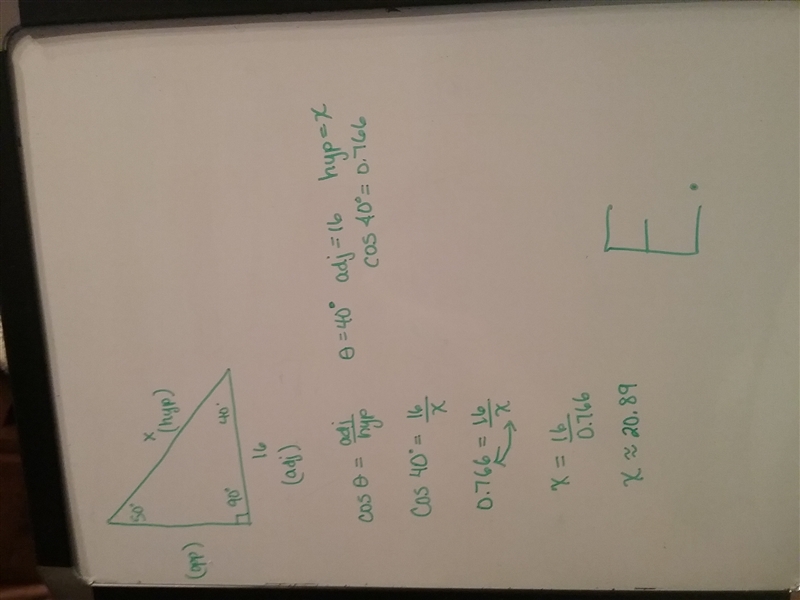 50°
x
(hyp)
(opp)
90°
40°
16
(adj)
cos θ = adj/hyp
θ = 40° adj = 16 hyp = x
cos 40° = 0.766
cos 40° = 16/x
0.766 = 16/x
x = 16/0.766
x ≈ 20.89
E.